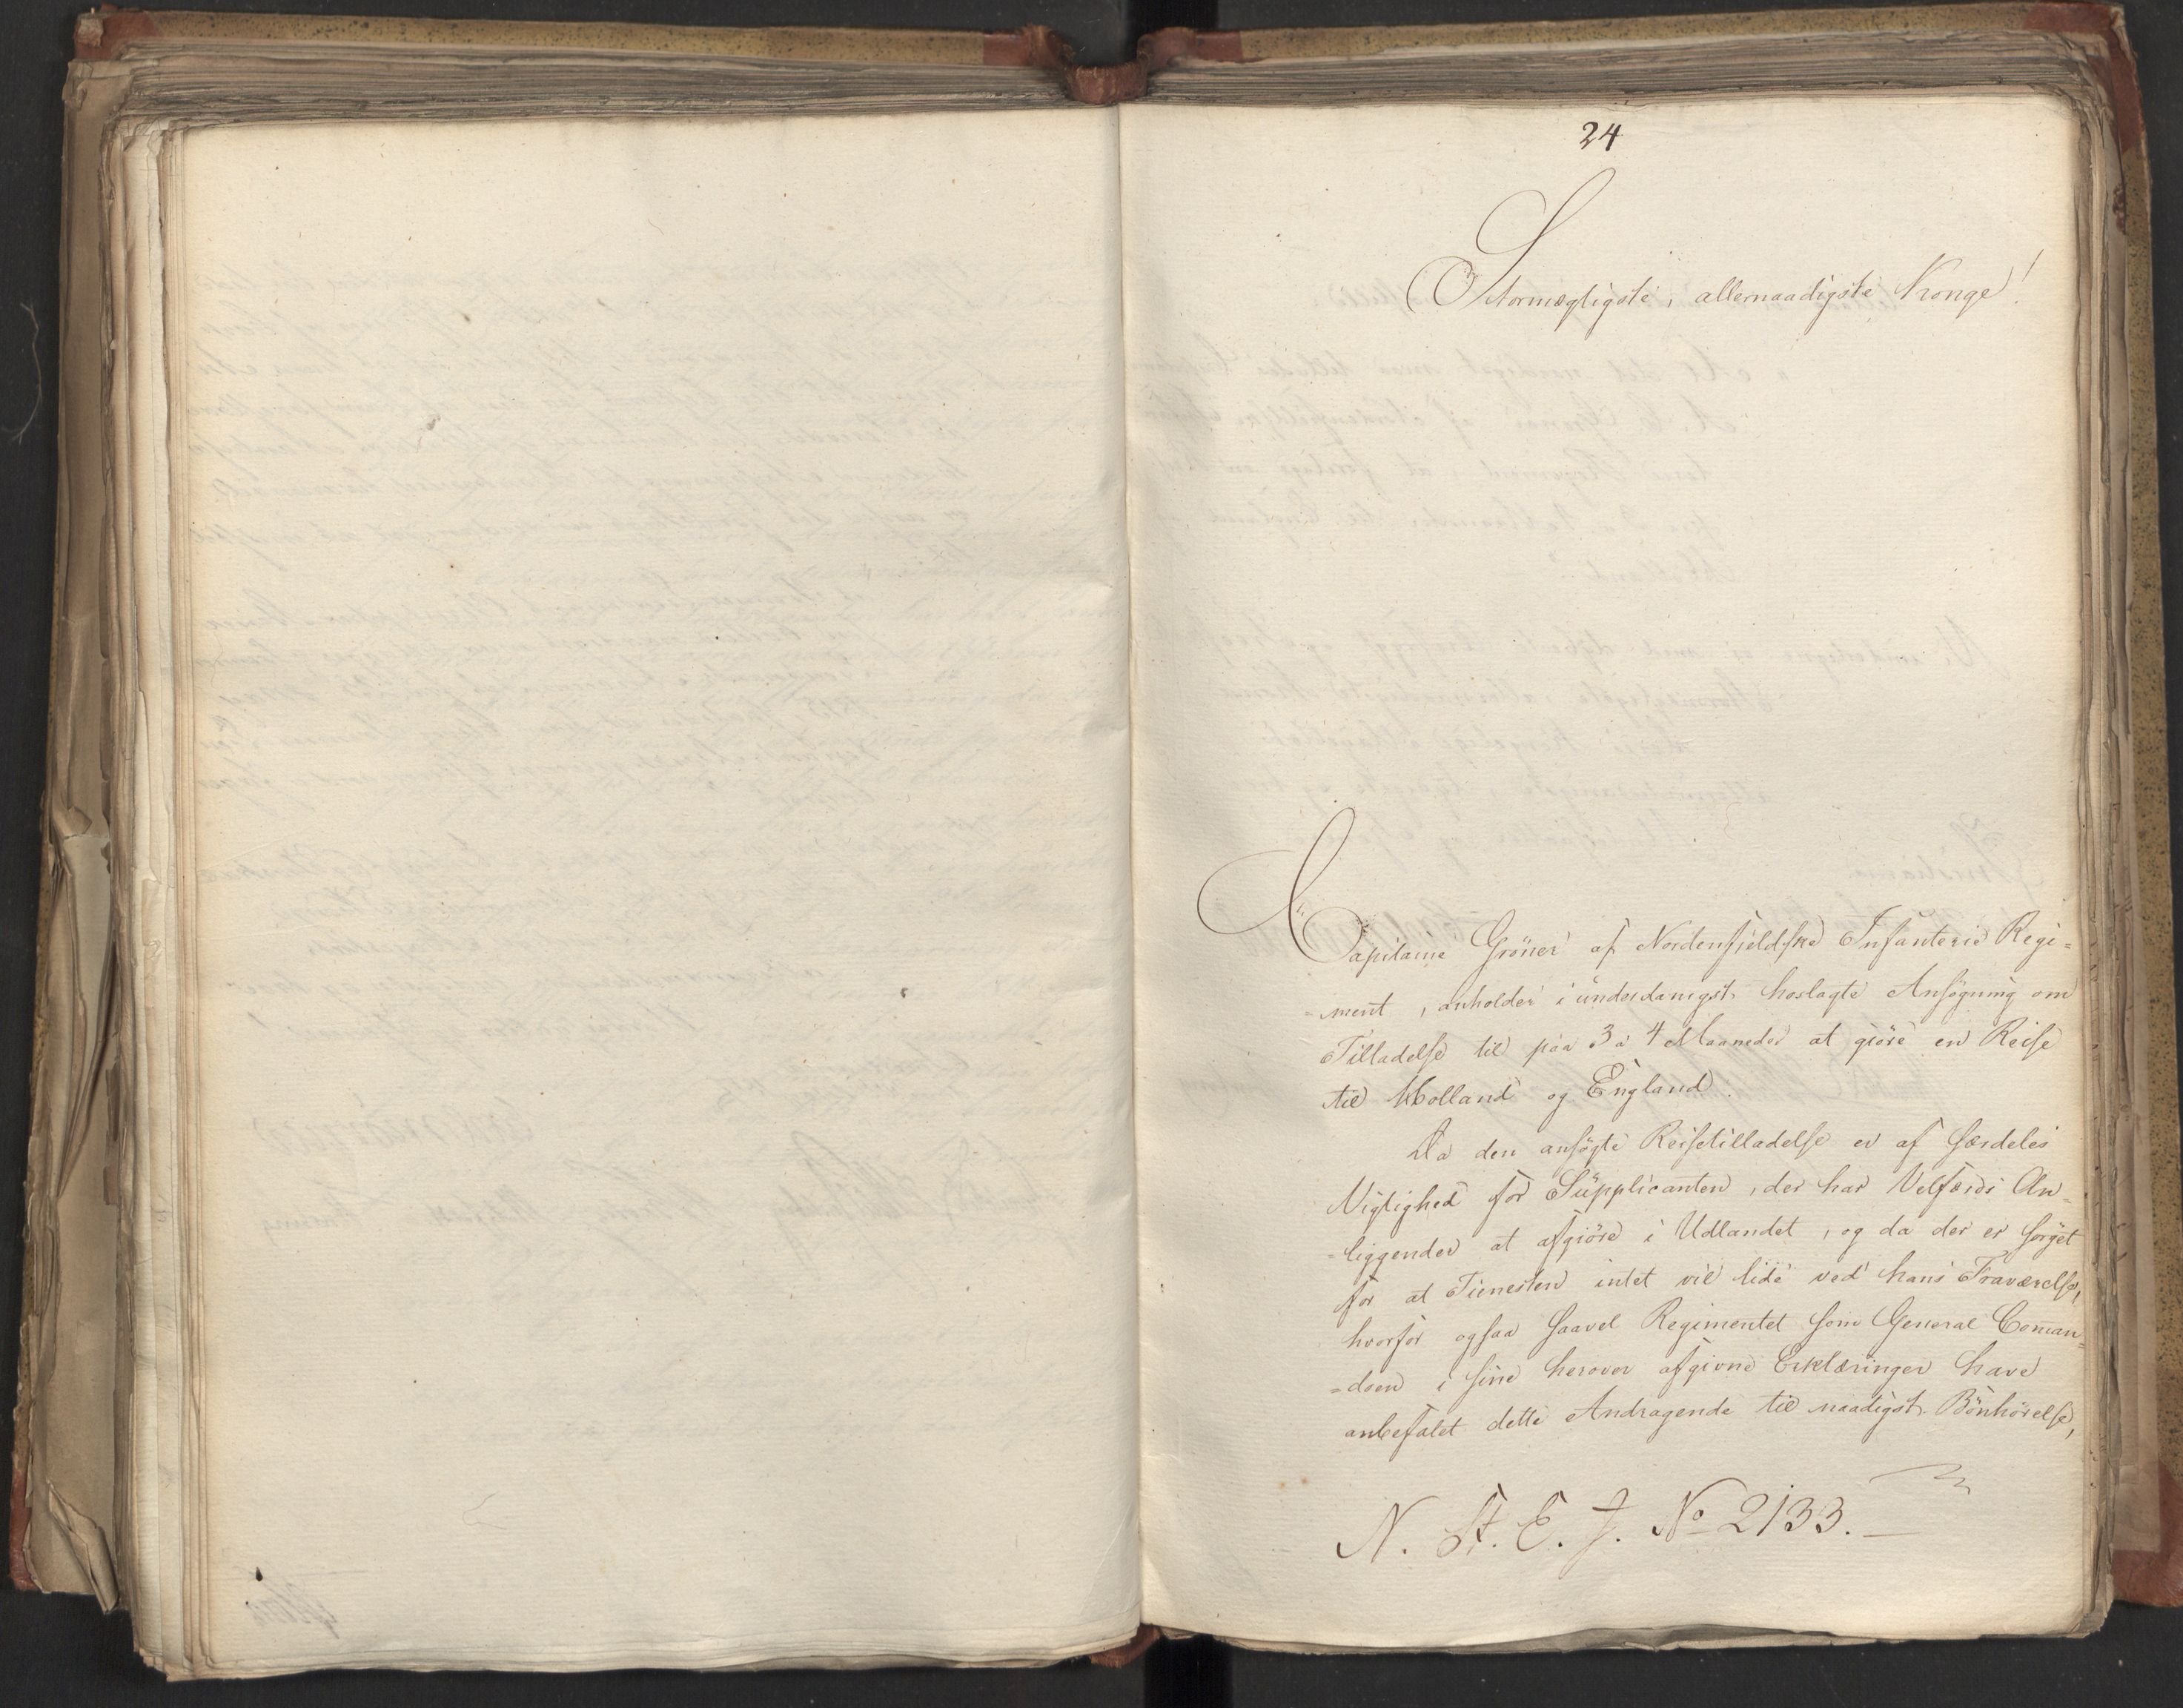 24
Stormægtigste, allernaadigste Konge!
Capitaine Gröner af Nordenfjeldske Infanterie Regi=
=ment, anholder i underdanigst hoslagte Ansøgning om
Tilladelse til paa 3 a 4 Maaneder at giöre en Reise
til Holland og England.
Da den ansøgte Reisetilladelse er af særdeles
Vigtighed for Supplicanten, der har Velfærds An=
=liggender at afgiöre i Udlandet, og da der er sørget
for at Tienesten intet vil lide ved hans Fraværelse,
hvorfor ogsaa saavel Regimentet som General Coman=
=doen i sine herover afgivne Erklæringer have
anbefalet dette Andragende til naadigst Bönhörelse,
N. St. E. J. No 2133.